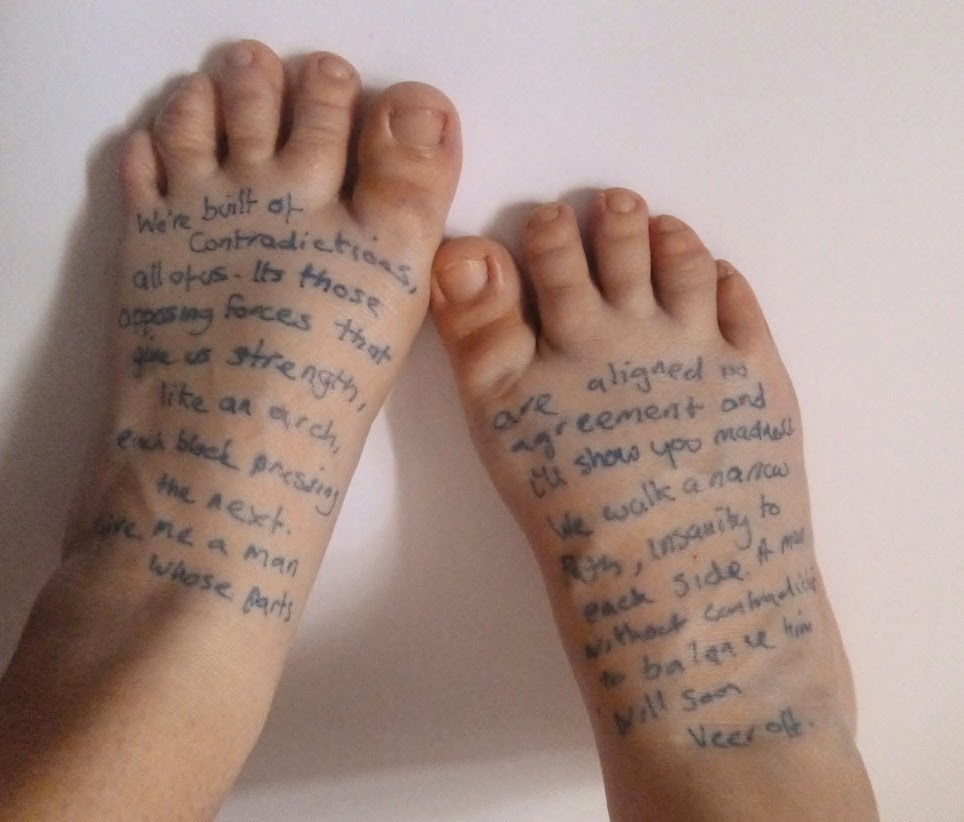 We're built of
Contradictions,
all of us- Its those
opposing forces that
give us strength,
like an arch,
each block pressing
the next.
Give me a man
whose parts
are aligned in
agreement and
i'll show you madness
We walk a narrow
Path, insanity to
each side. A man
without contradictions
to balance him
Will soon
Veer off.